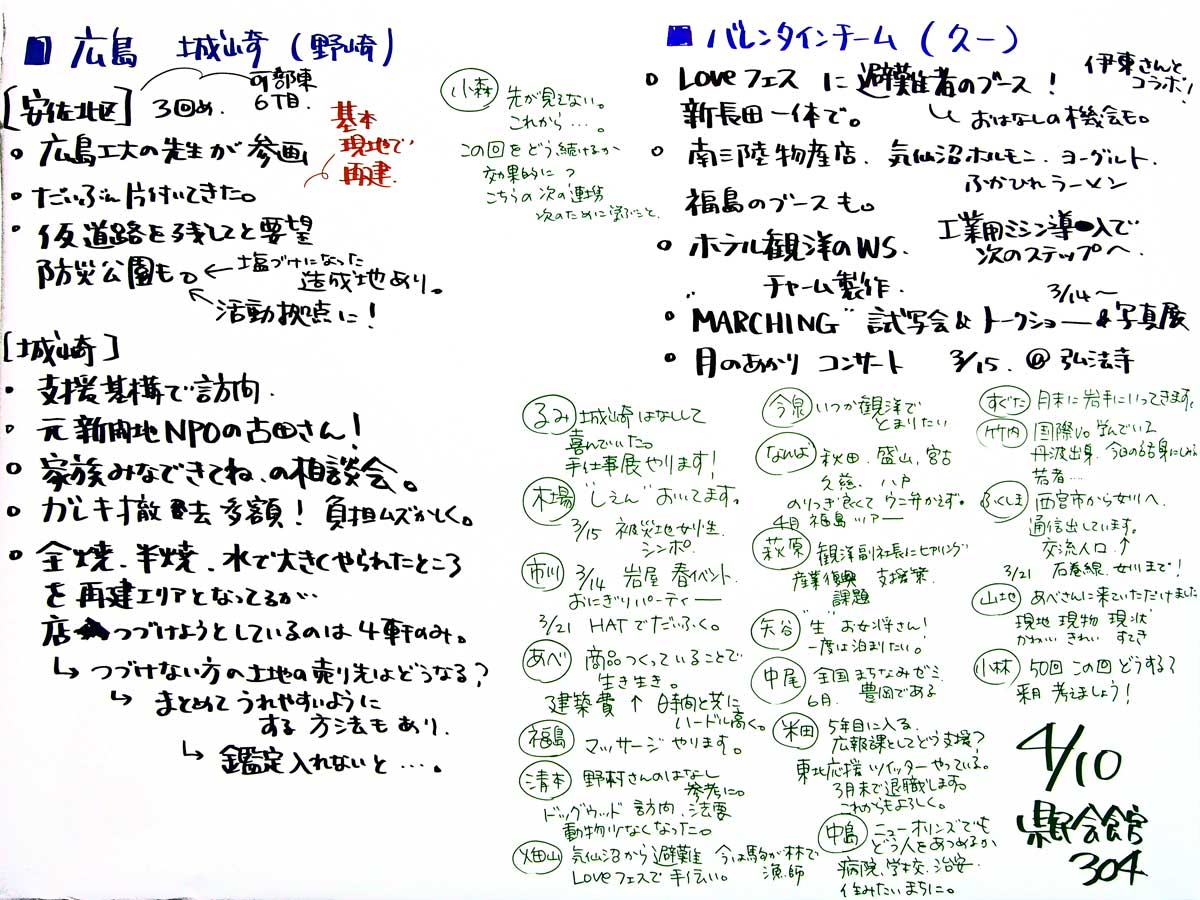 ■ 広島 城崎（野崎）
[安佐北区] 3回め.
可部東
6丁目.
・広島工大の先生が参画
基本
現地で
再建.
・だいぶん片付いてきた。
・仮道路を残してと要望
防災公園も。← 塩づけになった
造成地あり。
活動拠点に！
[城崎]
・支援基構で訪向.
・元新開地NPOの古田さん！
・家族みなできてね、の相談会。
・ガレキ撤去多額！負担ムズかしく。
・全焼、半焼、水で大きくやられたところ
を再建エリアとなってるが…
店つづけようとしているのは4軒のみ。
↳ つづけない方の土地の売り先はどうなる？
↳ まとめてうれやすいように
する方法もあり.
↳ 鑑定入れないと….
小森 先が見えない。
これから…。
この回をどう続けるか
効果的に？
こちらの次の連携
次のために学ぶこと.
■ バレンタインチーム（久一）
・Loveフェスに避難者のブース！
伊東さんと
コラボ！
新長田一体で。
おはなしの機会も。
・南三陸物産店、気仙沼ホルモン、ヨーグルト.
ふかひれラーメン
福島のブースも。
・ホテル観洋のWS.
工業用ミシン導入で
次のステップへ.
〃 チャーム製作.
3/14～
・MARCHING〃試写会&トークショー&写真展
・月のあかり コンサート 3/15. @弘法寺
るみ 城崎はなしして
喜んでいた。
手仕事展やります！
木場 "しえん"おいてます。
3/15 被災地女性
シンポ.
市川 3/14 岩屋 春イベント.
おにぎりパーティー
3/21 HATでだいふく。
あべ 商品つくっていることで
生き生き。
建築費 ↑ 時向と共に
ハードル高く。
福島 マッサージやります。
清本 野村さんのはなし
参考に。
ドッグウッド 訪向、法要
動物少なくなった。
畑山 気仙沼から避難 今は駒が林で
漁師
Loveフェスで手伝い。
今泉 いつか観洋で
とまりたい
なんば 秋田、盛山、宮古
久慈、ハ戸
のりつぎ良くてウニ丼かえず。
4月 福島ツアー
萩原 観洋副社長にヒアリング
産業復興 支援策.
課題
矢谷 "生"お女将さん！
一度は泊まりたい。
中尾 全国まちなみゼミ.
6月. 豊岡である
米田 5年目に入る.
広報課としてどう支援？
東北応援ツイッターやっている。
3月末で退職します。
これからもよろしく。
中島 ニューオリンズでも
どう人をあつめるか
病院、学校、治安、
住みたいまちに。
すぐた 月末に岩手にいってきます。
竹内 国際vo 学んでいる
丹波出身.
若者….
ふくしま 西宮市から女川へ.
通信出しています。
交流人口.↑
3/21 石巻線、女川まで！
山地 あべさんに来ていただけました
現地 現物 現状
かわいい きれい すてき
小林 50回 この回どうする？
来月 考えましょう！
4/10
県民会館
304